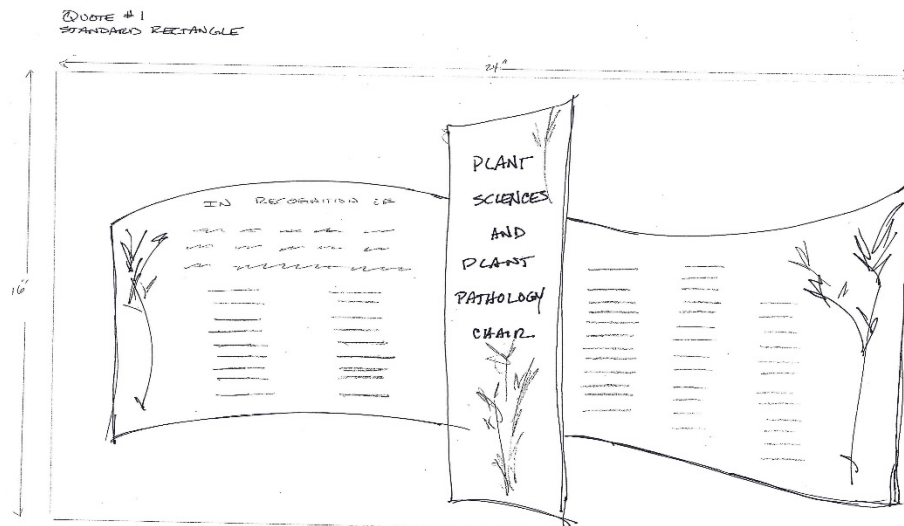 QUOTE #1
STANDARD RECTANGLE
24"
16"
IN RECOGNITION OF
PLANT
SCIENCES
AND
PLANT
PATHOLOGY
CHAIR